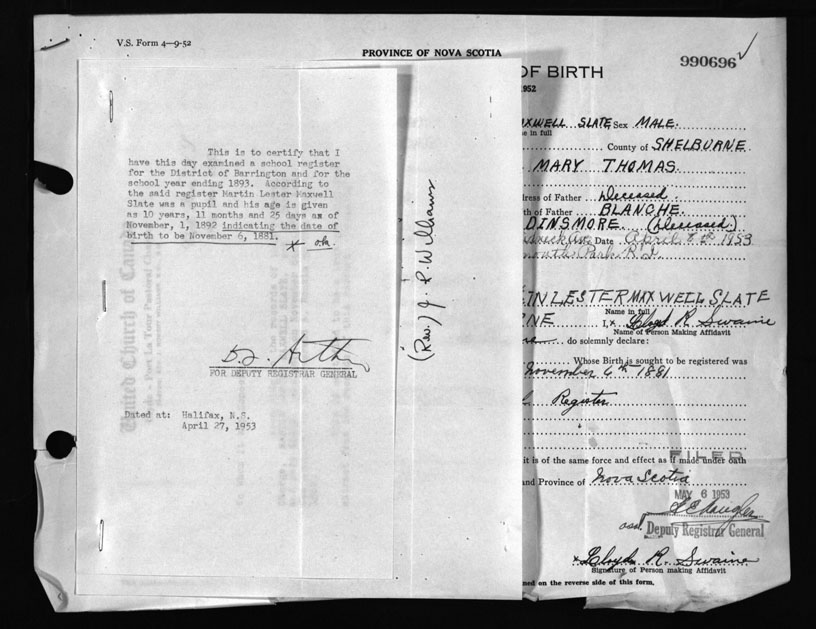 V.S. Form 4—9-52
PROVINCE OF NOVA SCOTIA
990696
OF BIRTH
1952
This is to certify that I
have this day examined a school register
for the District of Barrington and for the
school year ending 1893. According to
the said register Martin Lester Maxwell
Slate was a pupil and his age is given
as 10 years, 11 months and 25 days as of
November, 1, 1892 indicating the date of
birth to be November 6, 1881.
FOR DEPUTY REGISTRAR GENERAL
Dated at: Halifax, N.S.
April 27, 1953
(Rev.) J. P. Williams
United Church of
MAXWELL SLATE Sex MALE.
me in full
County of SHELBURNE
MARY THOMAS.
ress of Father Deceased.
th of Father BLANCHE.
DINSMORE. (Deceased)
Date April 1953
IN LESTER MAXWELL SLATE
Name in full
NE I, x Lloyd R. Swaine
Name of Person Making Affidavit
do solemnly declare:
Whose Birth is sought to be registered was
November 6th 1881
Register
it is of the same force and effect as if made under oath
FILED
and Province of Nova Scotia
MAY 6 1953
Deputy Registrar General
x Lloyd R. Swaine
Signature of Person making Affidavit
ned on the reverse side of this form.